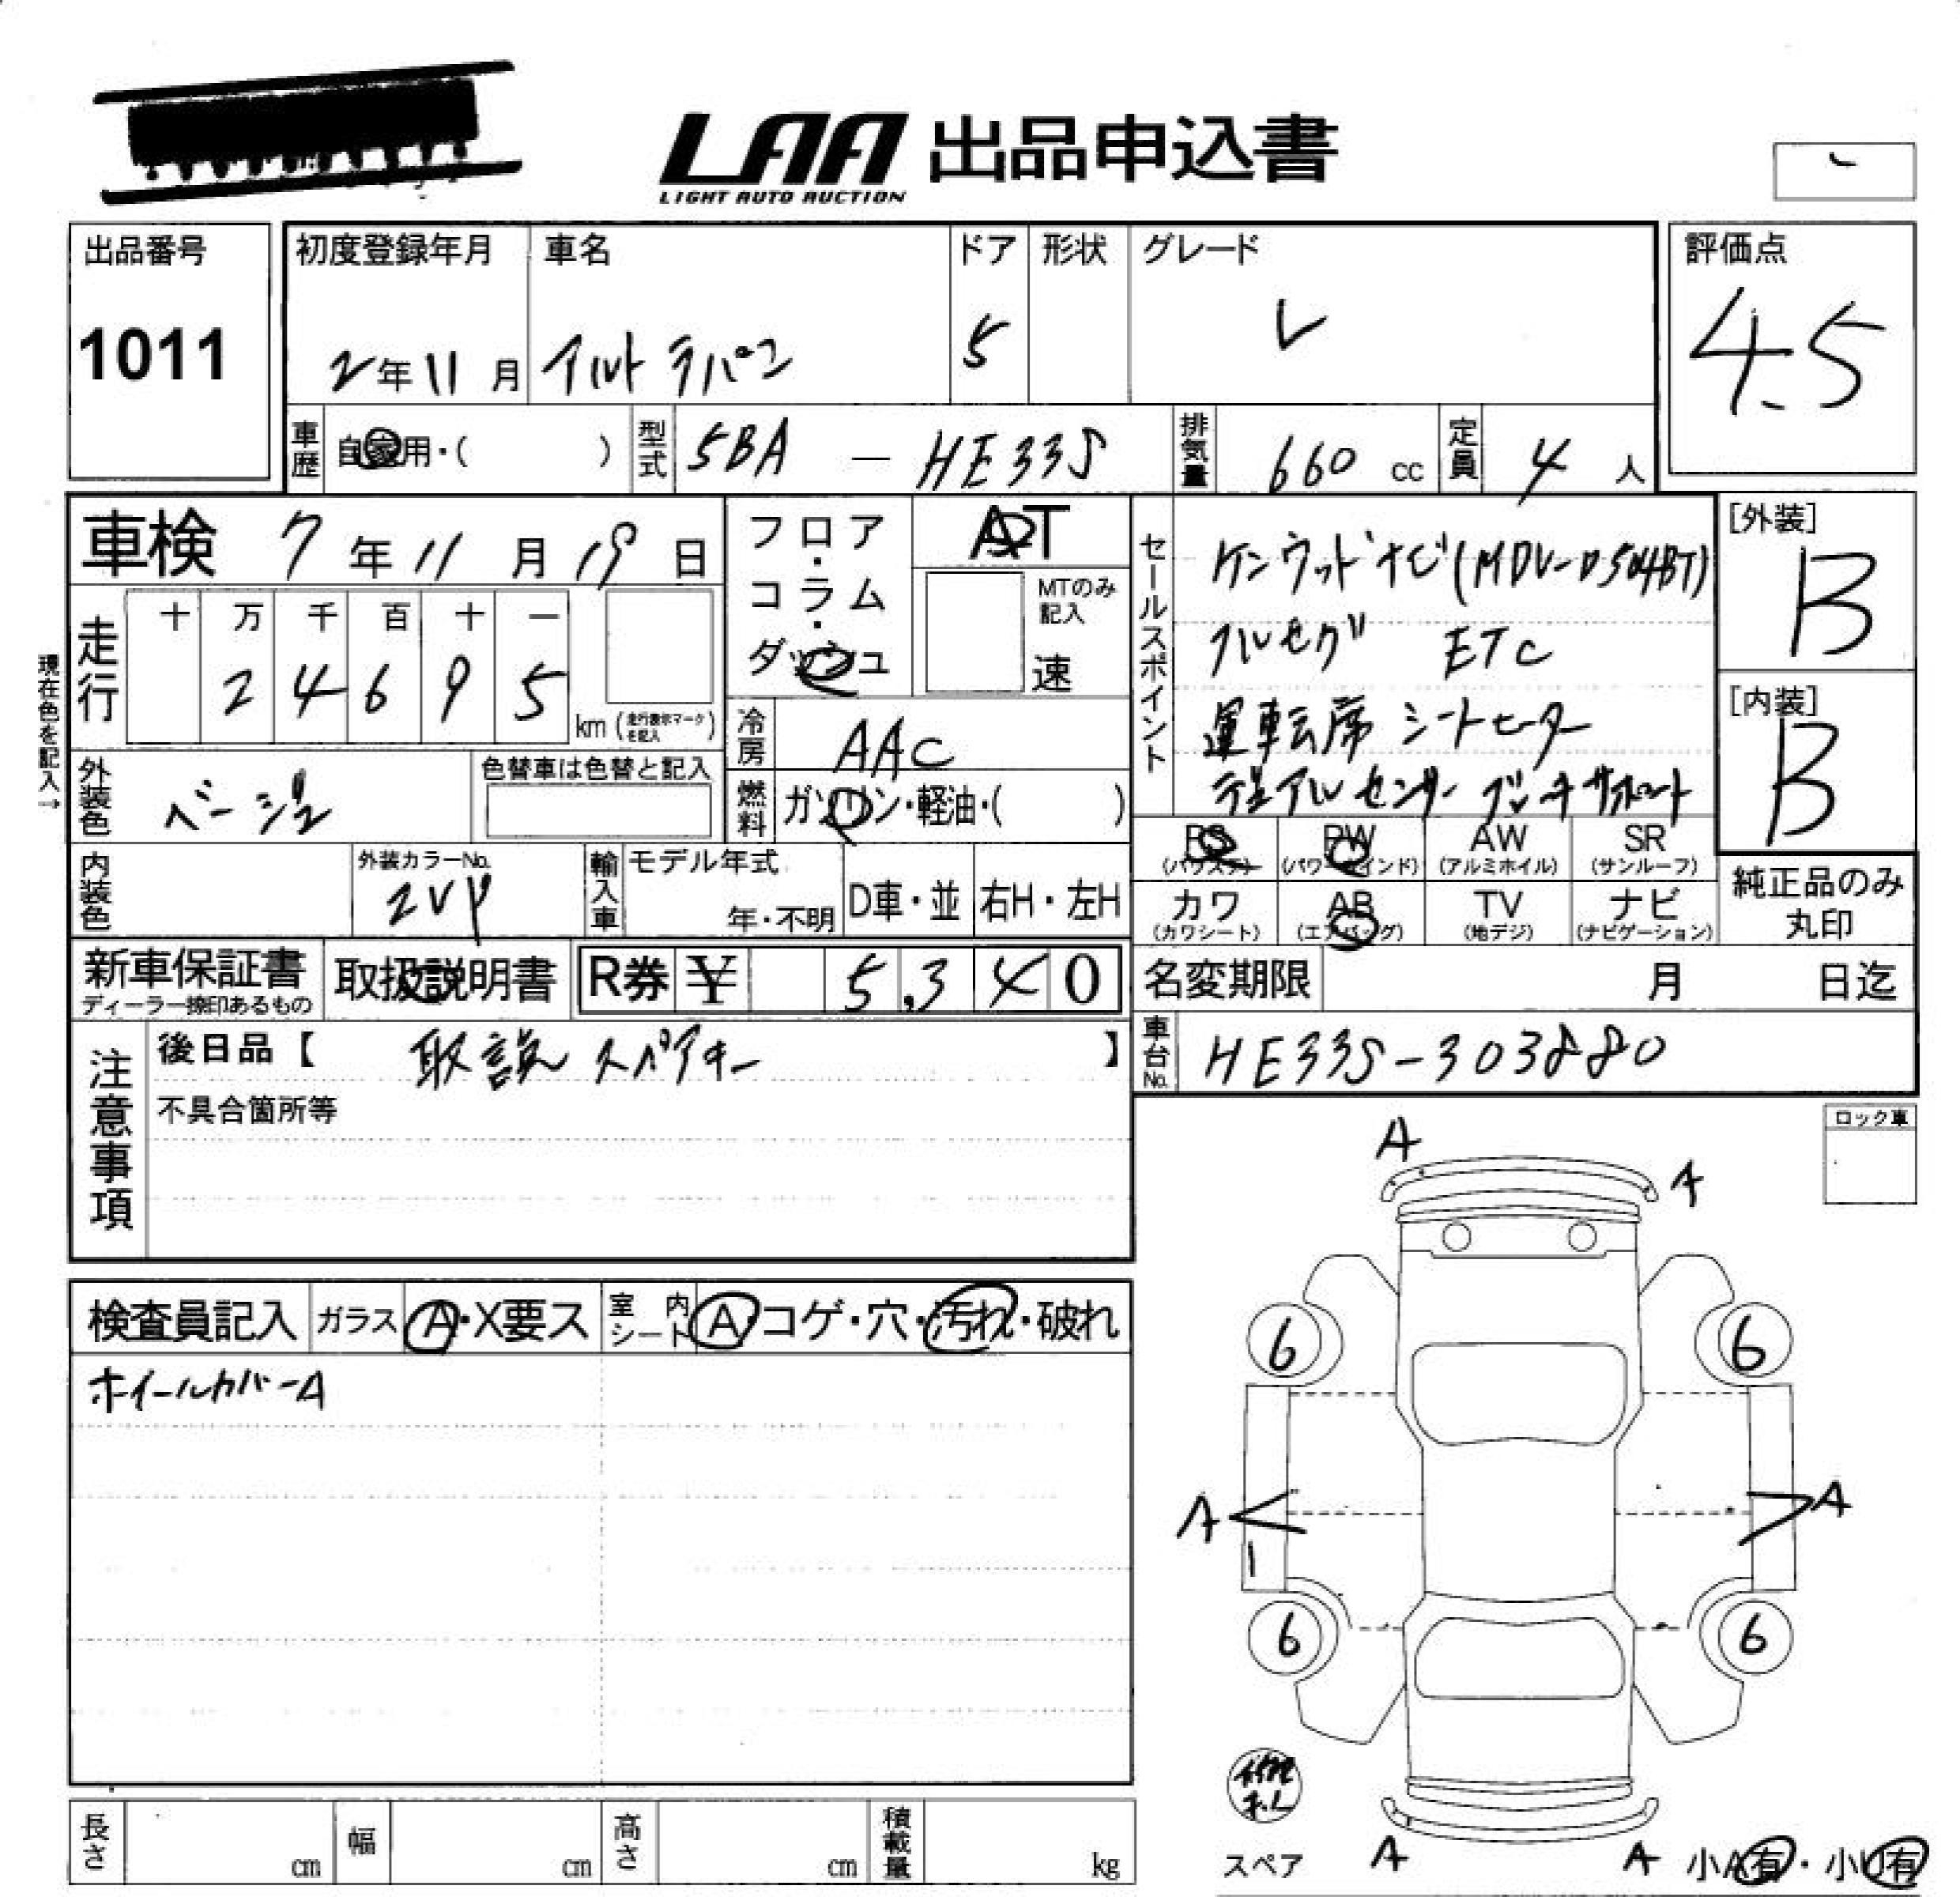 LAA 出品申込書
LIGHT AUTO AUCTION
出品番号
1011
初度登録年月
2年11月
車名
アルト ラパン
ドア
5
形状
グレード
L
評価点
4.5
車歴
自家用・( )
型式
5BA — HE33S
排気量
660 cc
定員
4 人
車検 7年11月19日
フロア・コラム・ダッシュ
AT
MTのみ記入
速
セールスポイント
ケンウッドナビ(MDV-D504BT)
フルセグ ETC
運転席 シートヒーター
デュアルセンサーブレーキサポート
[外装]
B
[内装]
B
現在色を記入→
走行
十 万 千 百 十 一
2 4 6 9 5
km (走行表示マークを記入)
冷房
AAC
外装色
ベージュ
色替車は色替と記入
燃料
ガソリン・軽油・( )
PS
(パワステ)
PW
(パワーウインド)
AW
(アルミホイル)
SR
(サンルーフ)
カワ
(カワシート)
AB
(エアバッグ)
TV
(地デジ)
ナビ
(ナビゲーション)
純正品のみ丸印
内装色
外装カラーNo.
2VP
輸入車
モデル年式
年・不明
D車・並
右H・左H
新車保証書
ディーラー捺印あるもの
取扱説明書
R券 ¥ 5,340
名変期限 月 日迄
注意事項
後日品【 取説 スペアキー 】
不具合箇所等
車台No.
HE33S-303880
ロック車
検査員記入
ガラス A・X要ス
室内シート A・コゲ・穴・汚れ・破れ
ホイールカバーA
A
A
6
6
A
A
6
6
A
A
スペア
小A有・小U有
長さ cm
幅 cm
高さ cm
積載量 kg